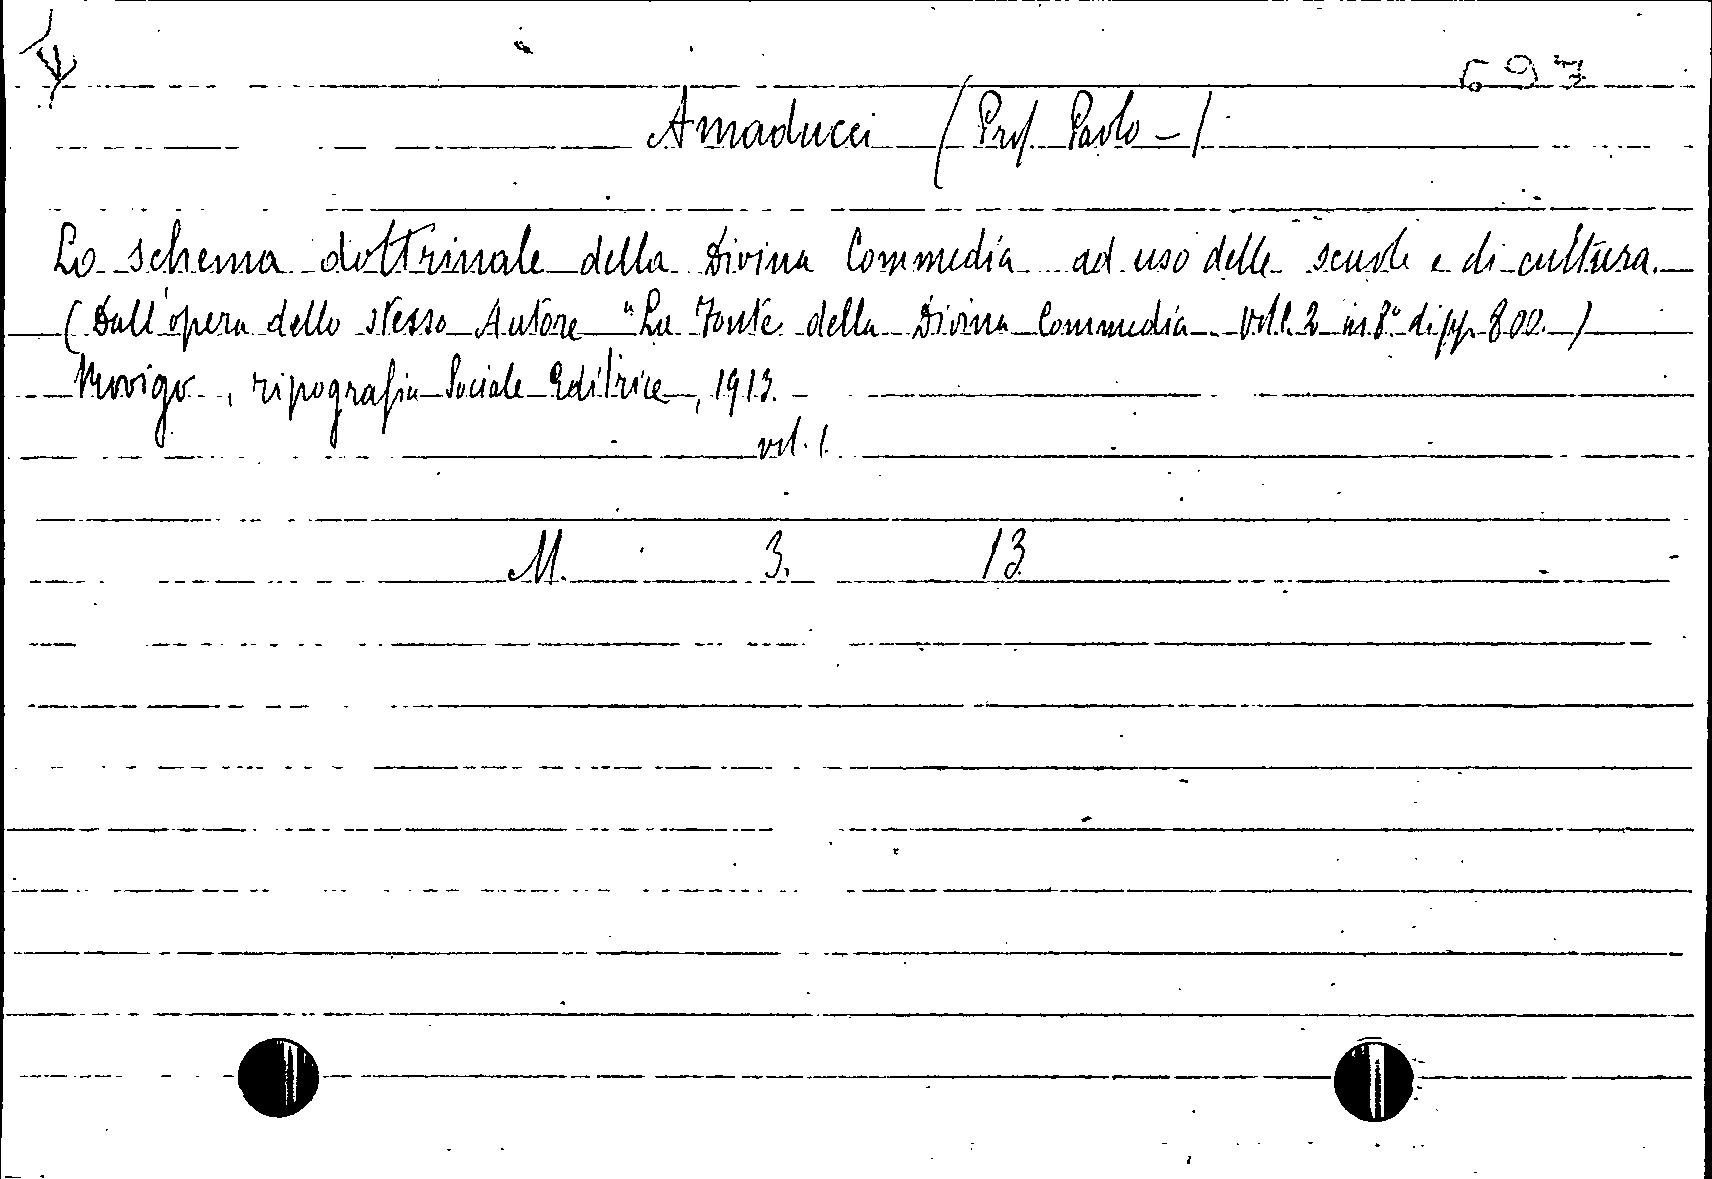 697
Amaducci (Prof. Paolo - )
Lo schema dottrinale della Divina Commedia ad uso delle scuole e di cultura.
(Dall'opera dello stesso Autore "La Fonte della Divina Commedia. Voll. 2 in 8° di pp. 800.)
Rovigo, tipografia Sociale Editrice, 1913.
vol. 1.
M. 3. 13